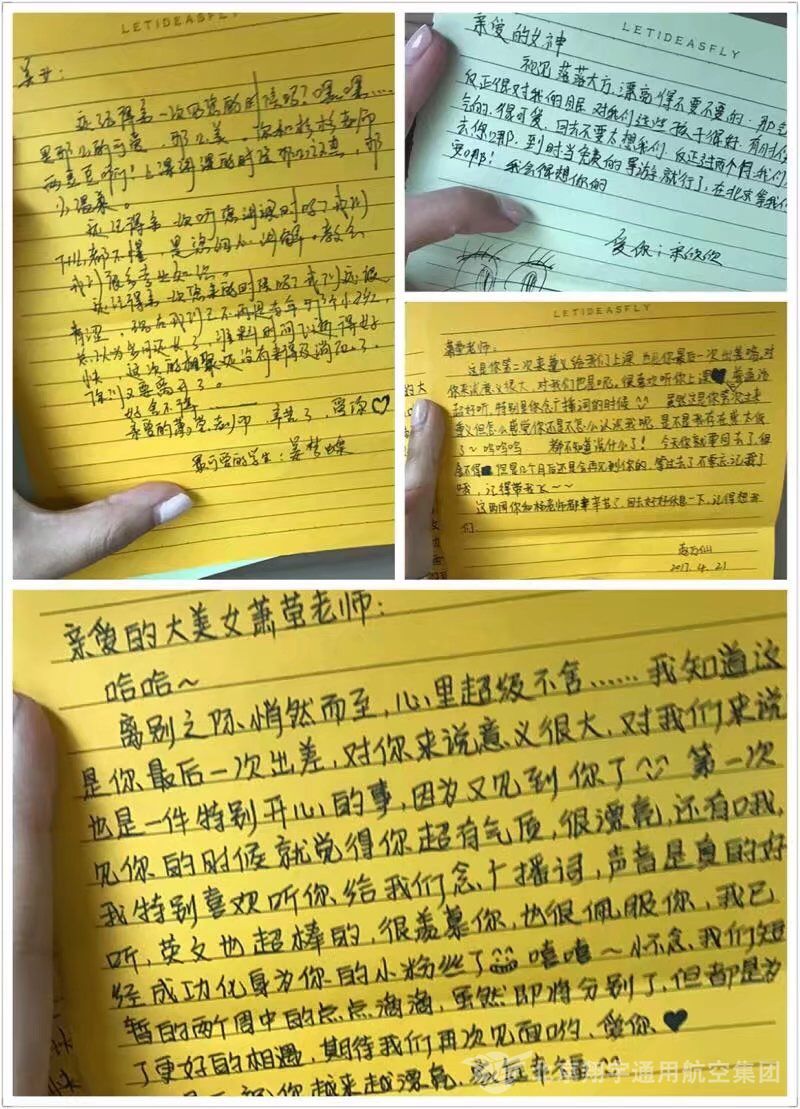 LETIDEASFLY
还记得第一次见您的时候吗？嘿嘿…
是那么的可爱，那么美，你和杉杉老师
上课词汇的时候那么认真，那
么温柔。
还记得第一次听您词汇时吗？我们
什么都不懂，是您细心讲解，教会
我们很多专业知识。
快，这次的相聚还没有来得及消化，
你们又要离开了。
好舍不得
亲爱的萧莹老师，辛苦了，爱你♥
最可爱的学生：姜梦蝶
LETIDEASFLY
亲爱的女神
初见落落大方，漂亮得不要不要的，那
反正很对我的眼，对我们这些孩子很好，有时候
气的，很可爱，回去不要太想我们，反正过两个月我们
去你那哪，到时当免费的导游就行了，在北京等我们
哭哪！我会很想你的
爱你：
LETIDEASFLY
萧莹老师：
这是你第二次来遵义给我们上课，也是你最后一次出差哈，对
你来说意义很大，对我们也是呢，很喜欢听你上课♥普通话
超好听，特别是你念广播词的时候
遵义但怎么感觉你还是不怎么认识我呢，是不是我存在感太低
了~呜呜呜 都不知道说什么了！今天你就要回去了，很
舍不得 但是几个月后还是会再见到你的，等过去了不要忘记我了
哦，记得带我飞~~
这两周你和杨老师都辛苦了，回去好好休息一下，记得想我
们
2017.4.21
亲爱的大美女萧莹老师：
哈哈~
离别之际悄然而至，心里超级不舍……我知道这
是你最后一次出差，对你来说意义很大，对我们来说
也是一件特别开心的事，因为又见到你了 第一次
见你的时候就觉得你超有气质，很漂亮，还有哦，
我特别喜欢听你给我们念广播词，声音是真的好
听，英文也超棒的，很羡慕你，也很佩服你，我已
经成功化身为你的小粉丝了 嘻嘻~怀念我们短
暂的两个周中的点点滴滴，虽然即将分别了，但都是为
了更好的相遇，期待我们再次见面哟，爱你♥
你越来越漂亮，
翔宇通用航空集团